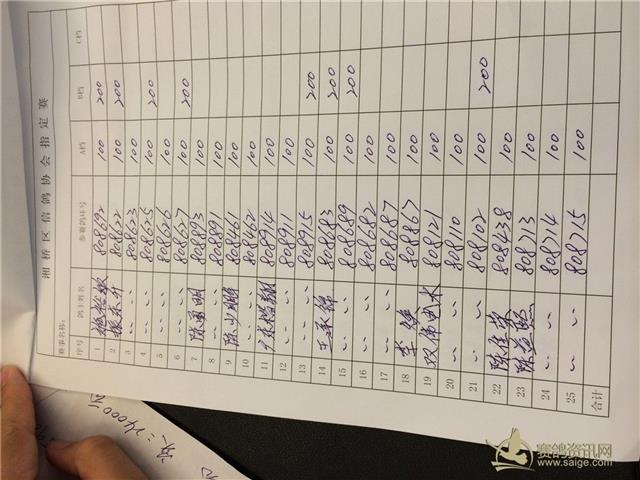 湘桥区信鸽协会指定赛
赛事名称:
序号 鸽主姓名 参赛鸽环号 A档 B档 C档
1 808692 100 200
2 808622 100 200
3 〃 〃 808623 100
4 〃 〃 808625 100 200
5 〃 〃 808626 100
6 〃 〃 808627 100 200
7 陈勇明 808893 100
8 〃 〃 808891 100
9 陈少鹏 808461 100
10 〃 〃 808462 100
11 808914 100
12 〃 〃 808911 100
13 〃 〃 808915 100 200
14 808683 100 200
15 〃 〃 808689 100 200
16 〃 〃 808682 100
17 〃 〃 808687 100
18 李 808867 100
19 双伟 808121 100
20 〃 〃 808110 100
21 〃 〃 808102 100 200
22 陈 808438 100
23 陈 808713 100
24 〃 〃 808714 100
25 〃 〃 808715 100
合计
=24000元
赛鸽资讯网
www.saige.com